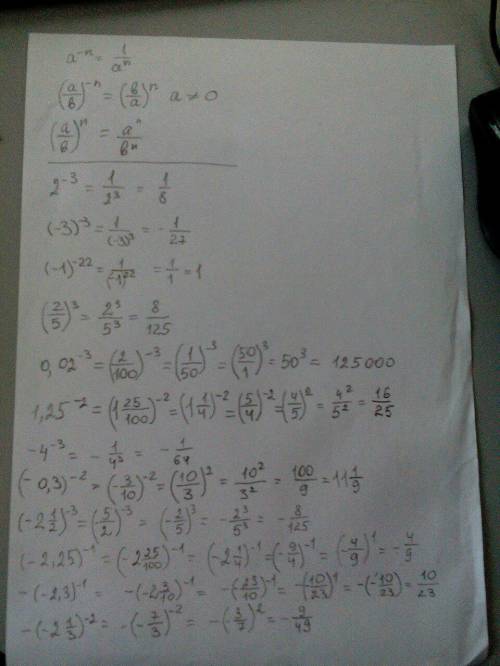 a⁻ⁿ = 1/aⁿ
(a/в)⁻ⁿ = (в/a)ⁿ a ≠ 0
(a/в)ⁿ = aⁿ/вⁿ
2⁻³ = 1/2³ = 1/8
(-3)⁻³ = 1/(-3)³ = -1/27
(-1)⁻²² = 1/(-1)²² = 1/1 = 1
(2/5)³ = 2³/5³ = 8/125
0,02⁻³ = (2/100)⁻³ = (1/50)⁻³ = (50/1)³ = 50³ = 125000
1,25⁻² = (1 25/100)⁻² = (1 1/4)⁻² = (5/4)⁻² = (4/5)² = 4²/5² = 16/25
-4⁻³ = -1/4³ = -1/64
(-0,3)⁻² = (-3/10)⁻² = (10/3)² = 10²/3² = 100/9 = 11 1/9
(-2 1/2)⁻³ = (-5/2)⁻³ = (-2/5)³ = -2³/5³ = -8/125
(-2,25)⁻¹ = (-2 25/100)⁻¹ = (-2 1/4)⁻¹ = (-9/4)⁻¹ = (-4/9)¹ = -4/9
-(-2,3)⁻¹ = -(-2 3/10)⁻¹ = -(-23/10)⁻¹ = -(-10/23)¹ = -(-10/23) = 10/23
-(-2 1/3)⁻² = -(-7/3)⁻² = -(-3/7)² = -9/49